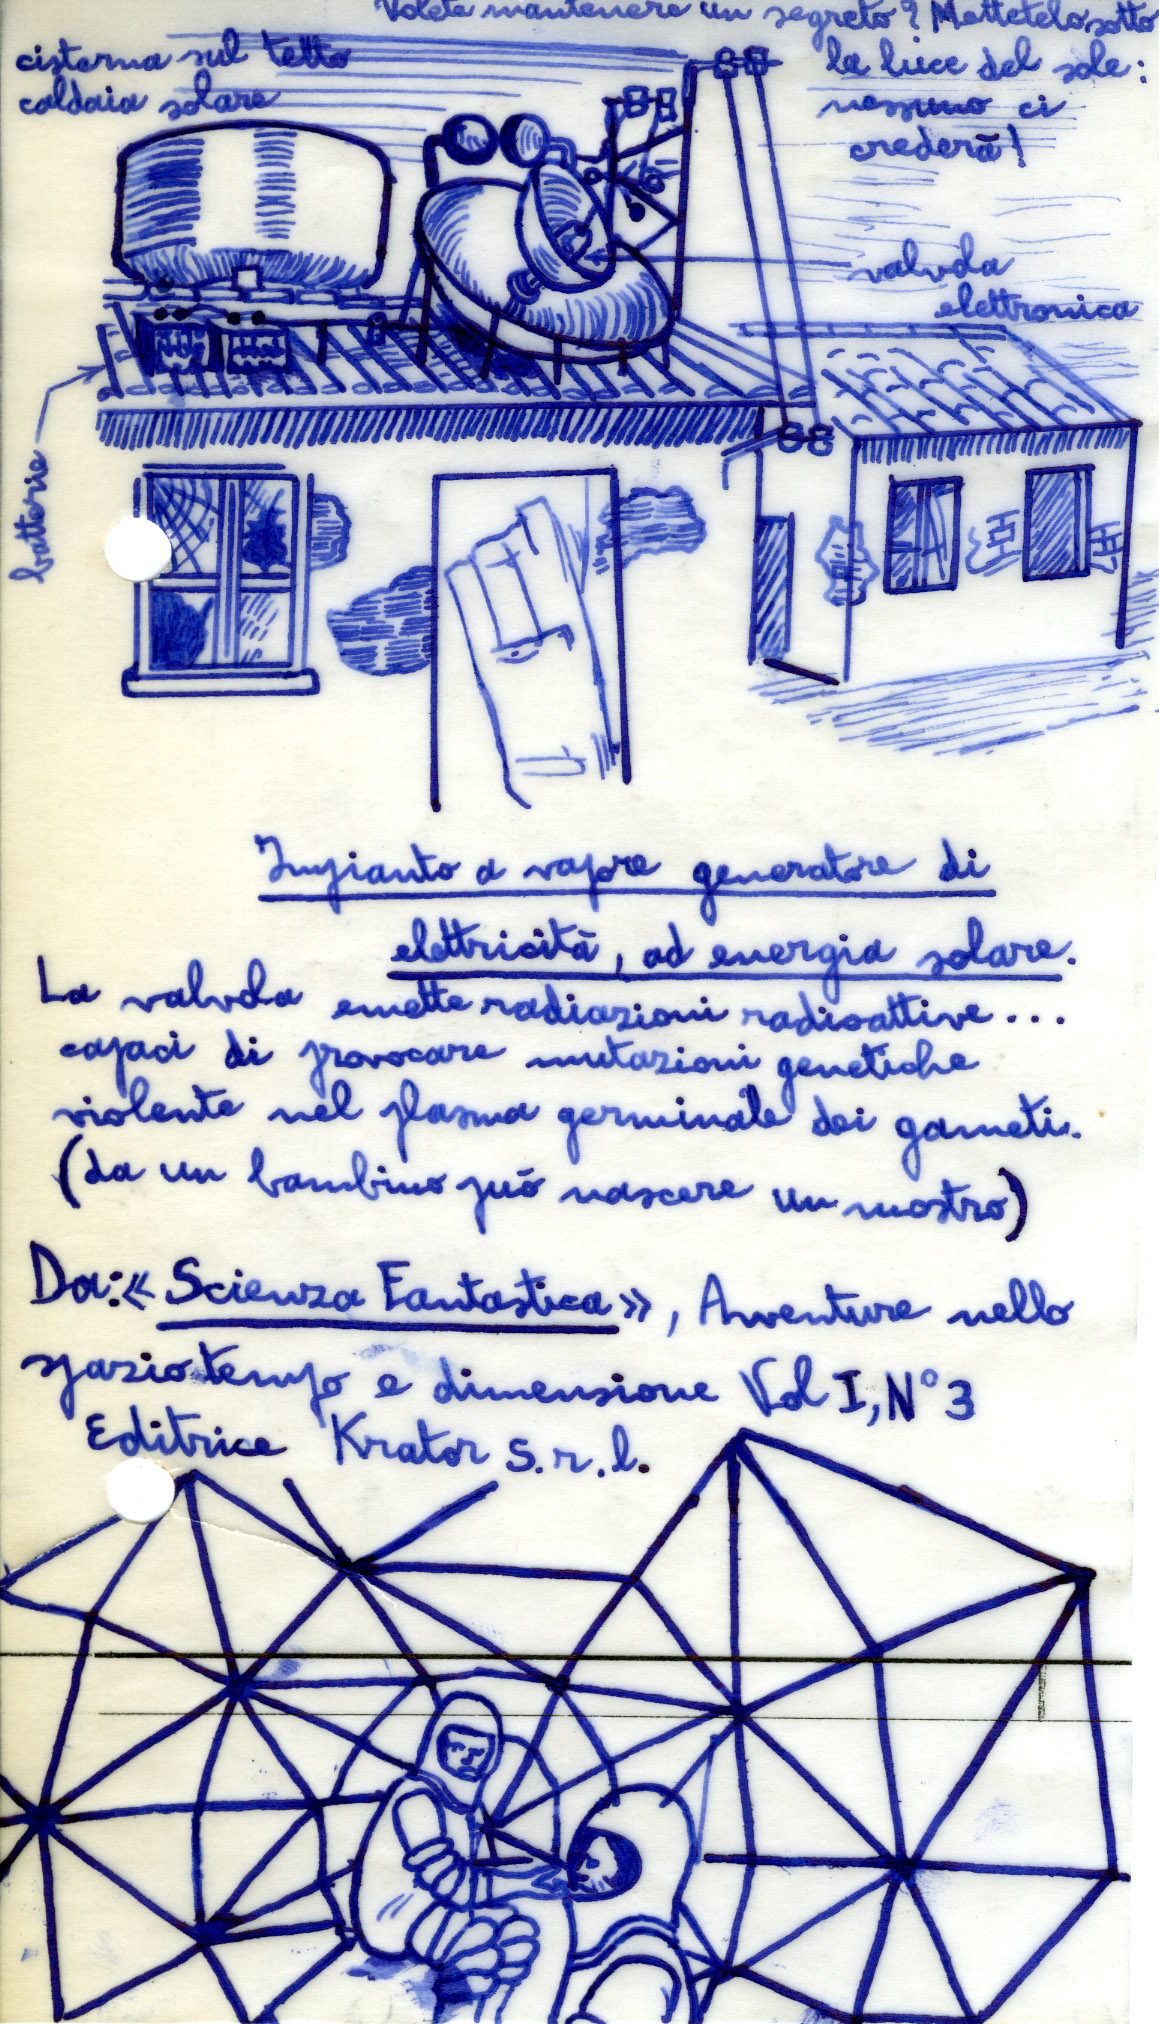 Volete mantenere un segreto? Mettetelo sotto
la luce del sole:
nessuno ci
crederà!
cisterna sul tetto
caldaia solare
valvola
elettronica
batterie
Impianto a vapore generatore di
elettricità, ad energia solare.
La valvola emette radiazioni radioattive...
capaci di provocare mutazioni genetiche
violente nel plasma germinale dei gameti.
(da un bambino può nascere un mostro)
Da: «Scienza Fantastica», Avventure nello
spazio tempo e dimensione Vol I, N° 3
Editrice Krator S.r.l.